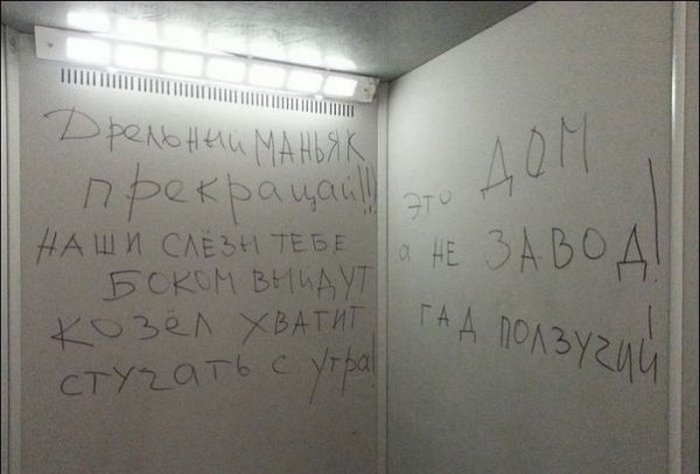 Дрельный МАНЬЯК
прекращай!!!
НАШИ СЛЁЗЫ ТЕБЕ
БОКОМ ВЫЙДУТ
КОЗЁЛ ХВАТИТ
СТУЧАТЬ С УТРА!
ЭТО ДОМ
а НЕ ЗАВОД!
ГАД ПОЛЗУЧИЙ!